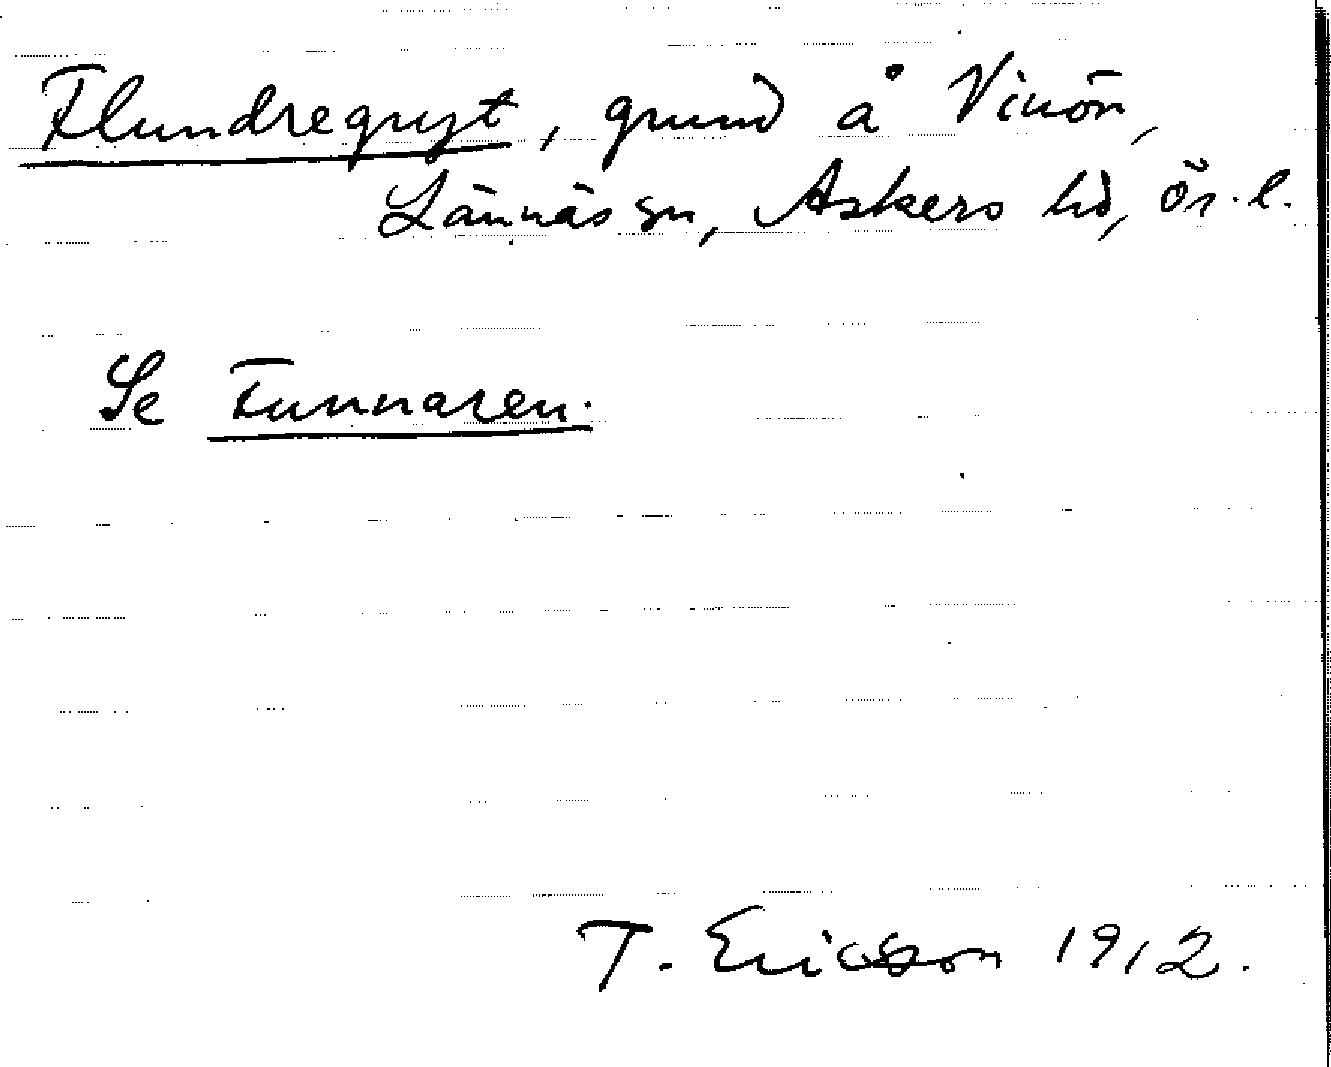 Flundregryt, grund å Vinön,
Lännäs sn, Askers hd, Ör. l.
Se Tunnaren.
T. Ericsson 1912.